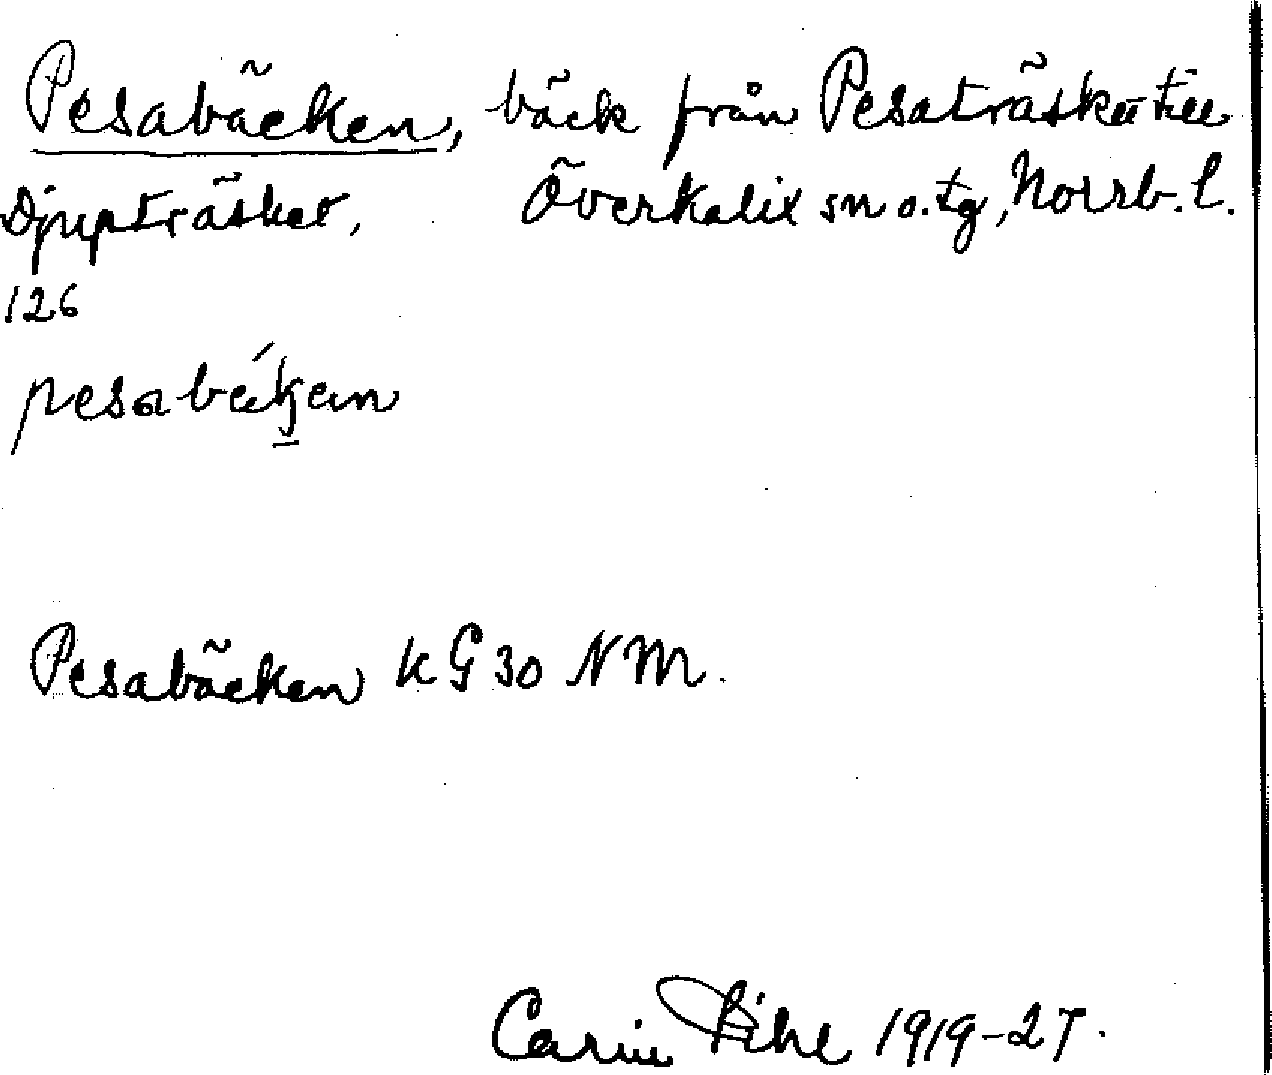 Pesabäcken, bäck från Pesaträsket till
Djupträsket, Överkalix sn o. tg, Norrb. l.
126
Pesabäcken KG 30 NM.
Carin Pihl 1919-27.